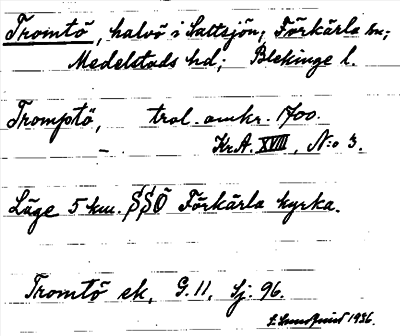 Tromtö, halvö i Saltsjön, Förkärla sn;
Medelstads hd; Blekinge l.
Tromptö, trol. omkr. 1700.
Kr.A. XVIII, N:o 3.
Läge 5 km. SSÖ Förkärla kyrka.
Tromtö ek, G.11, Sj. 96.
1936.